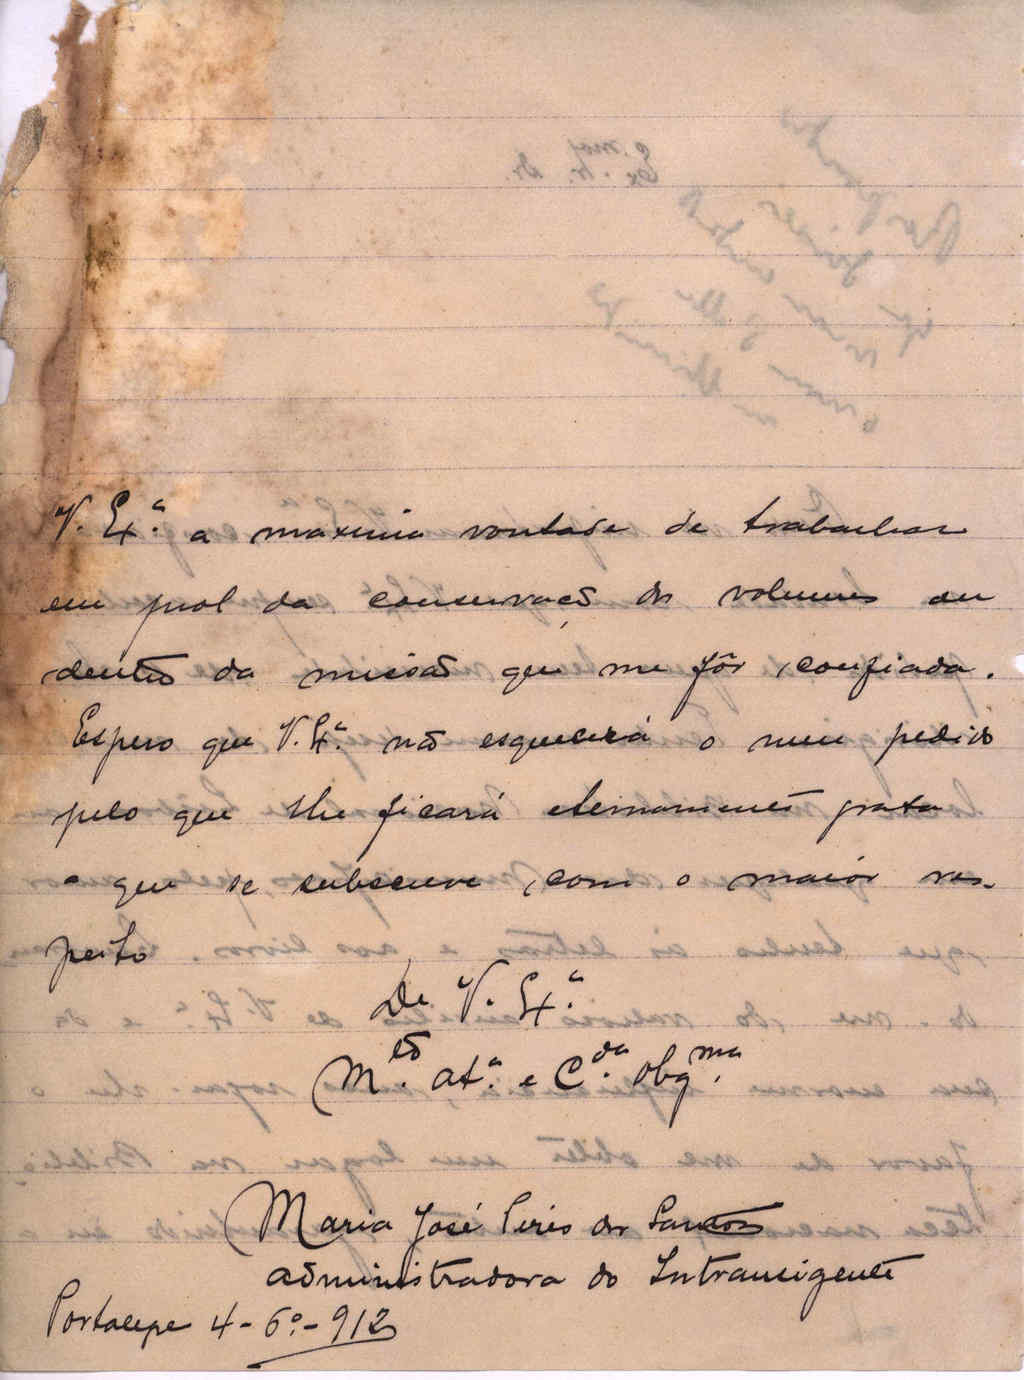 V. Ex.ª a maxima vontade de trabalhar
em prol da conservação dos volumes ou
dentro da missão que me fôr confiada.
Espero que V. Ex.ª não esquecerá o meu pedido
pelo que lhe ficará eternamente grata
a que se subscreve, com o maior res-
peito
De V. Ex.ª
M.to At.ª e C.da Obg.ma
Maria José Pires dos Santos
administradora do Intransigente
Portalegre 4-6º-912